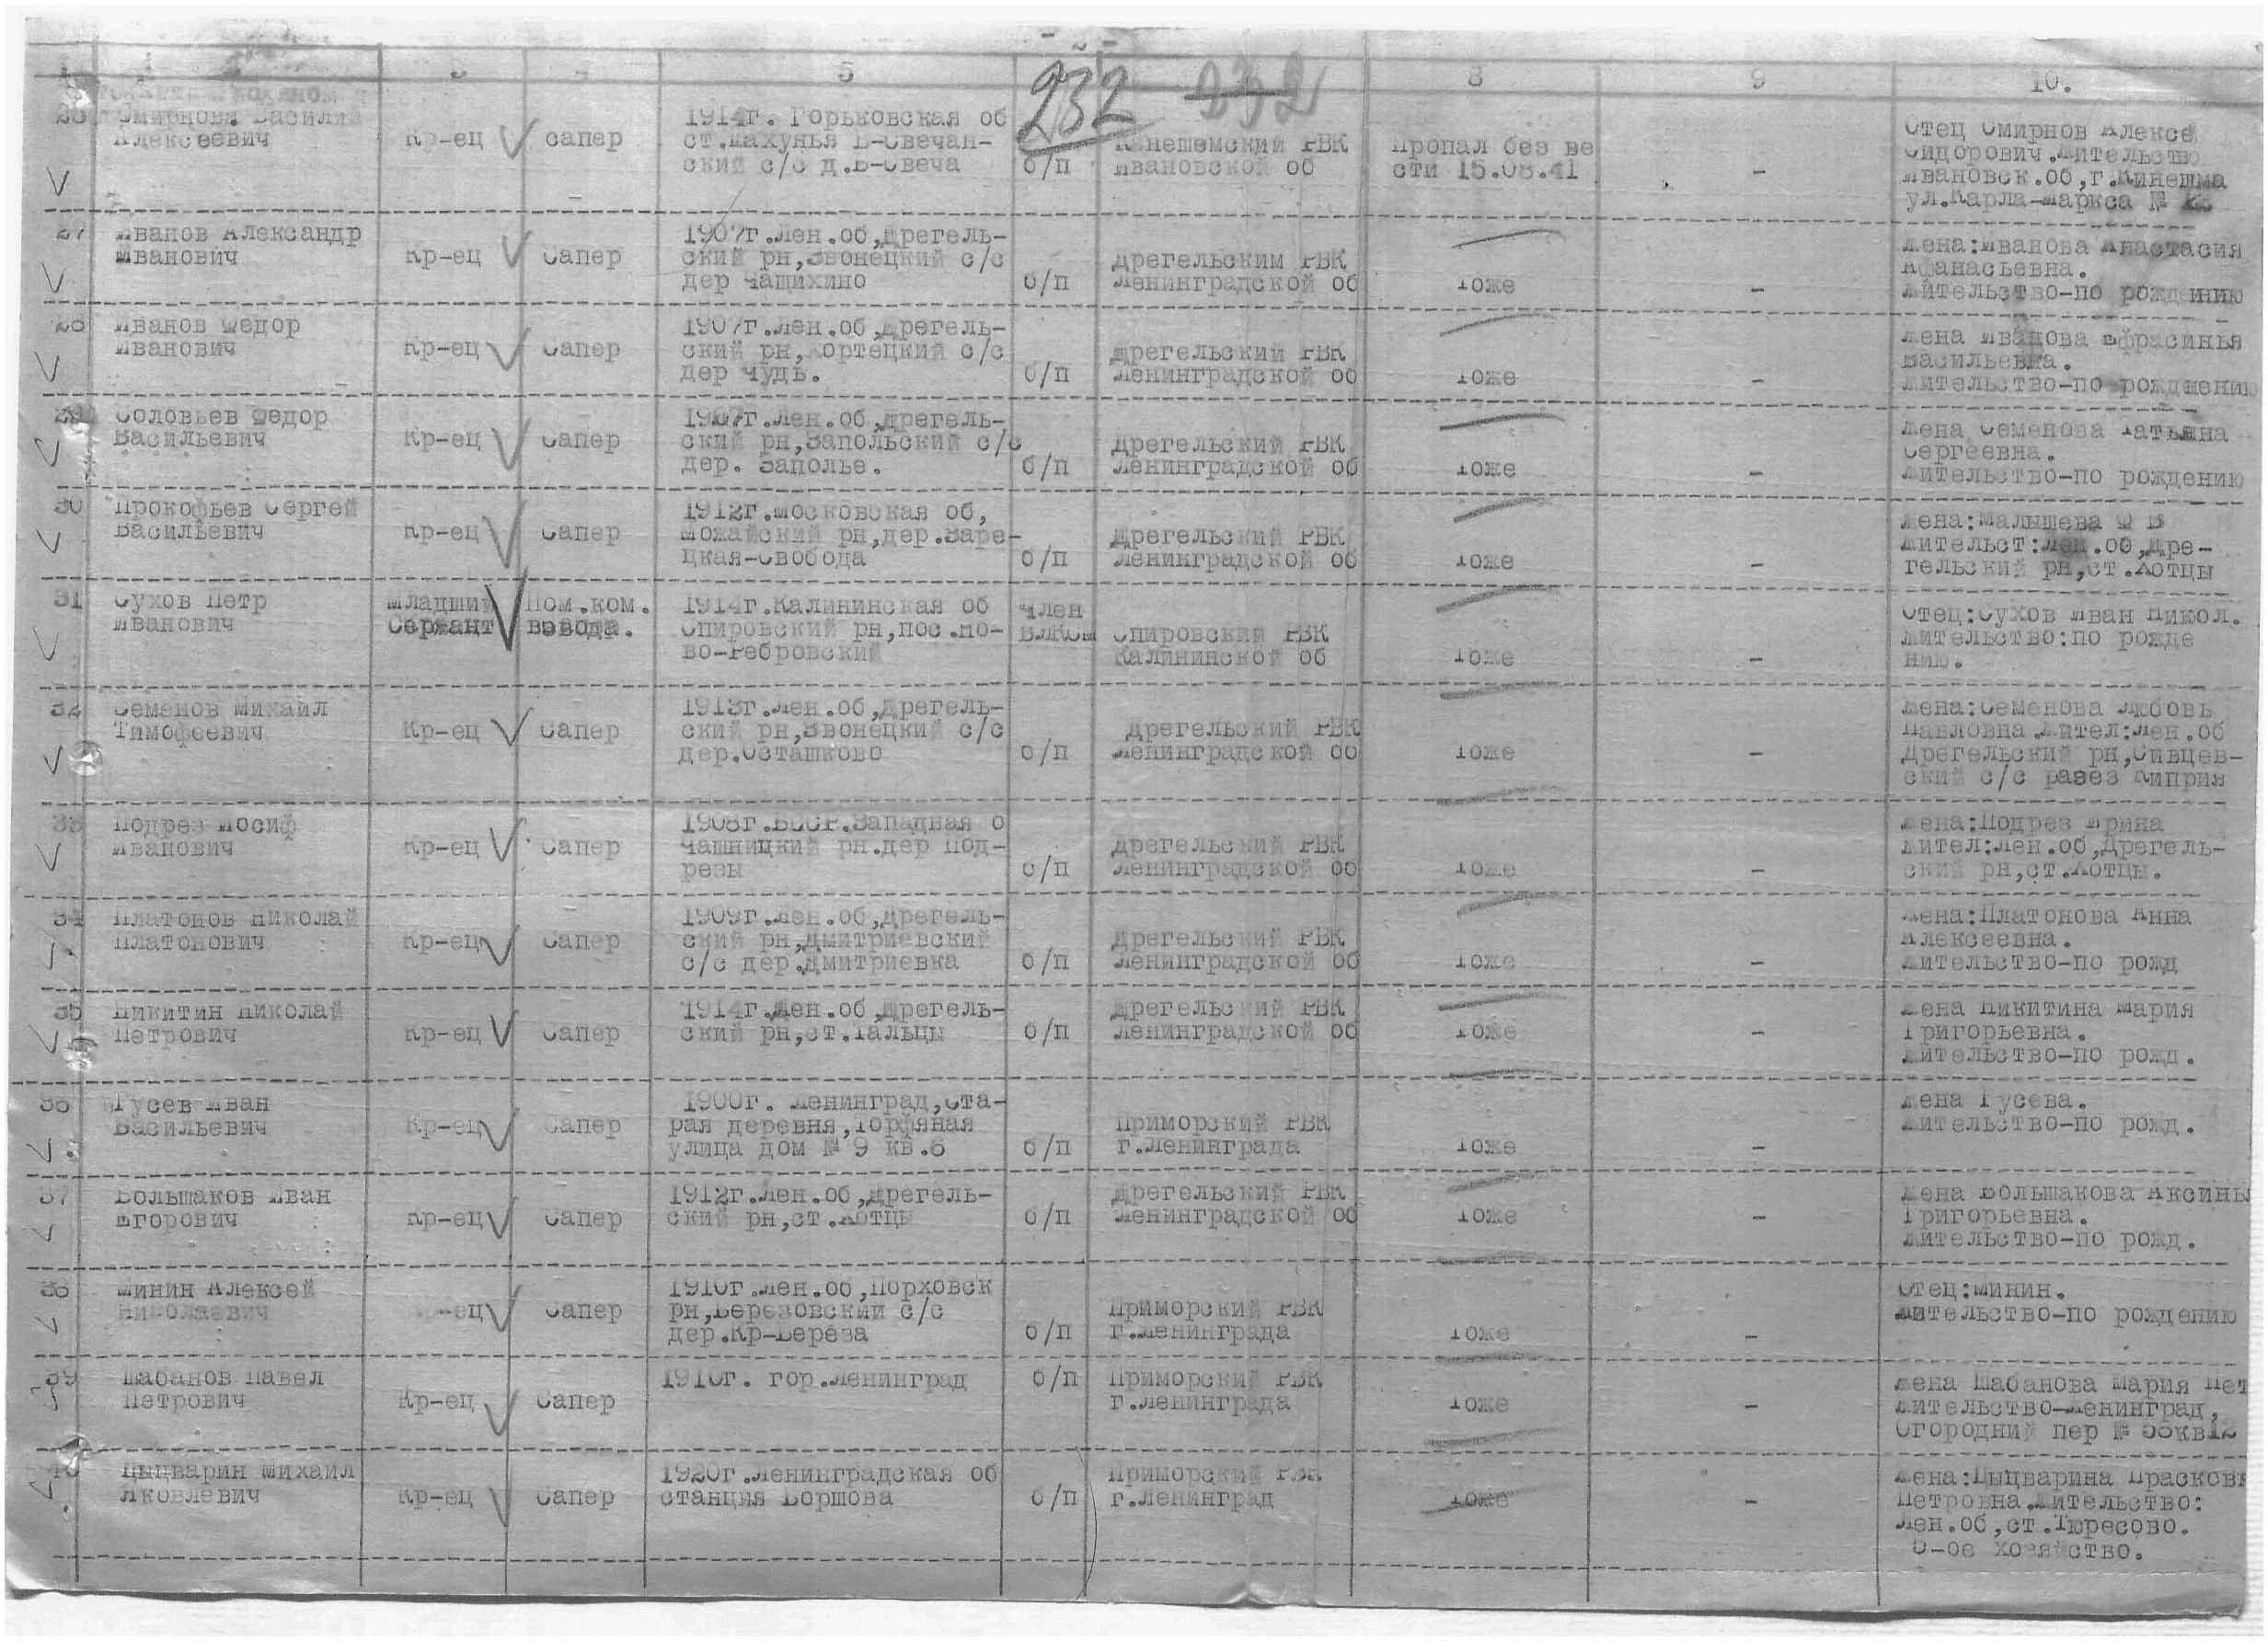 5
8
9
10.
232 232
26 Смирнов Василий
Алексеевич
Кр-ец
сапер
1914г. Горьковская об
ст.Шахунья Б-Свечан-
ский с/с д.Б-Свеча
б/п
Кинешемский РВК
Ивановской об
Пропал без ве
сти 15.08.41
-
Отец Смирнов Алексе
Сидорович.Жительство
Ивановск.об,г.Кинешма
ул.Карла-Маркса №
27 Иванов Александр
Иванович
Кр-ец
Сапер
1907г.Лен.об,Дрегель-
ский рн,Звонецкий с/с
дер Чащихино
б/п
Дрегельским РВК
Ленинградской об
Тоже
-
Жена:Иванова Анастасия
Афанасьевна.
Жительство-по рождению
28 Иванов Федор
Иванович
Кр-ец
Сапер
1907г.Лен.об,Дрегель-
ский рн,Хортецкий с/с
дер Чудь.
б/п
Дрегельский РВК
Ленинградской об
Тоже
-
Жена Иванова Ефрасинья
Васильевна.
Жительство-по рождмению
29 Соловьев Федор
Васильевич
Кр-ец
Сапер
1907г.Лен.об,Дрегель-
ский рн,Запольский с/с
дер. Заполье.
б/п
Дрегельский РВК
Ленинградской об
Тоже
-
Жена Семенова Татьяна
Сергеевна.
Жительство-по рождению
30 Прокофьев Сергей
Васильевич
Кр-ец
Сапер
1912г.Московская об,
Можайский рн,дер.Заре-
цкая-Свобода
б/п
Дрегельский РВК
Ленинградской об
Тоже
-
Жена:Малышева Ф В
Жительст:Лен.об,Дре-
гельский рн,ст.Хотцы
31 Сухов Петр
Иванович
Младший
Сержант
Пом.ком.
взвода.
1914г.Калининская об
Спировский рн,пос.Но-
во-Ребровский
член
ВЛКСМ
Спировский РВК
Калининской об
Тоже
-
Отец:Сухов Иван Никол.
Жительство:по рожде
нию.
32 Семенов Михаил
Тимофеевич
Кр-ец
Сапер
1913г.Лен.об,Дрегель-
ский рн,Звонецкий с/с
дер.Осташково
б/п
Дрегельский РВК
Ленинградской об
Тоже
-
Жена:Семенова Любовь
Павловна.Жител:Лен.об
Дрегельский рн,Сивцев-
ский с/с разез Киприя
33 Подрез Иосиф
Иванович
Кр-ец
Сапер
1908г.БССР.Западная о
Чашницкий рн.дер Под-
резы
б/п
Дрегельский РВК
Ленинградской об
Тоже
-
Жена:Подрез Ирина
Жител:Лен.об,Дрегель-
ский рн,ст.Хотцы.
34 Платонов Николай
Платонович
Кр-ец
Сапер
1909г.Лен.об,Дрегель-
ский рн,Дмитриевский
с/с дер.Дмитриевка
б/п
Дрегельский РВК
Ленинградской об
Тоже
-
Жена:Платонова Анна
Алексеевна.
Жительство-по рожд
35 Никитин Николай
Петрович
Кр-ец
Сапер
1914г.Лен.об,Дрегель-
ский рн,ст.Тальцы
б/п
Дрегельский РВК
Ленинградской об
Тоже
-
Жена Никитина Мария
Григорьевна.
Жительство-по рожд.
36 Гусев Иван
Васильевич
Кр-ец
Сапер
1900г. Ленинград,Ста-
рая деревня,Торфяная
улица дом № 9 кв.6
б/п
Приморский РВК
г.Ленинграда
Тоже
-
Жена Гусева.
Жительство-по рожд.
37 Большаков Иван
Егорович
Кр-ец
Сапер
1912г.Лен.об,Дрегель-
ский рн,ст.Хотцы
б/п
Дрегельский РВК
Ленинградской об
Тоже
-
Жена Большакова Аксинь
Григорьевна.
Жительство-по рожд.
38 Минин Алексей
Николаевич
Кр-ец
Сапер
1910г.Лен.об,Порховск
рн,Березовский с/с
дер.Кр-Береза
б/п
Приморский РВК
г.Ленинграда
Тоже
-
Отец:Минин.
Жительство-по рождению
39 Шабанов Павел
Петрович
Кр-ец
Сапер
1910г. гор.Ленинград
б/п
Приморский РВК
г.Ленинграда
Тоже
-
Жена Шабанова Мария Пет
Жительство-Ленинград,
Огородний пер № 58кв12
40 Цыцварин Михаил
Яковлевич
Кр-ец
Сапер
1920г.Ленинградская об
станция Борщова
б/п
Приморский РВК
г.Ленинград
Тоже
-
Жена:Цыцварина Прасковь
Петровна.Жительство:
Лен.об,ст.Тюресово.
5-ое хозяйство.